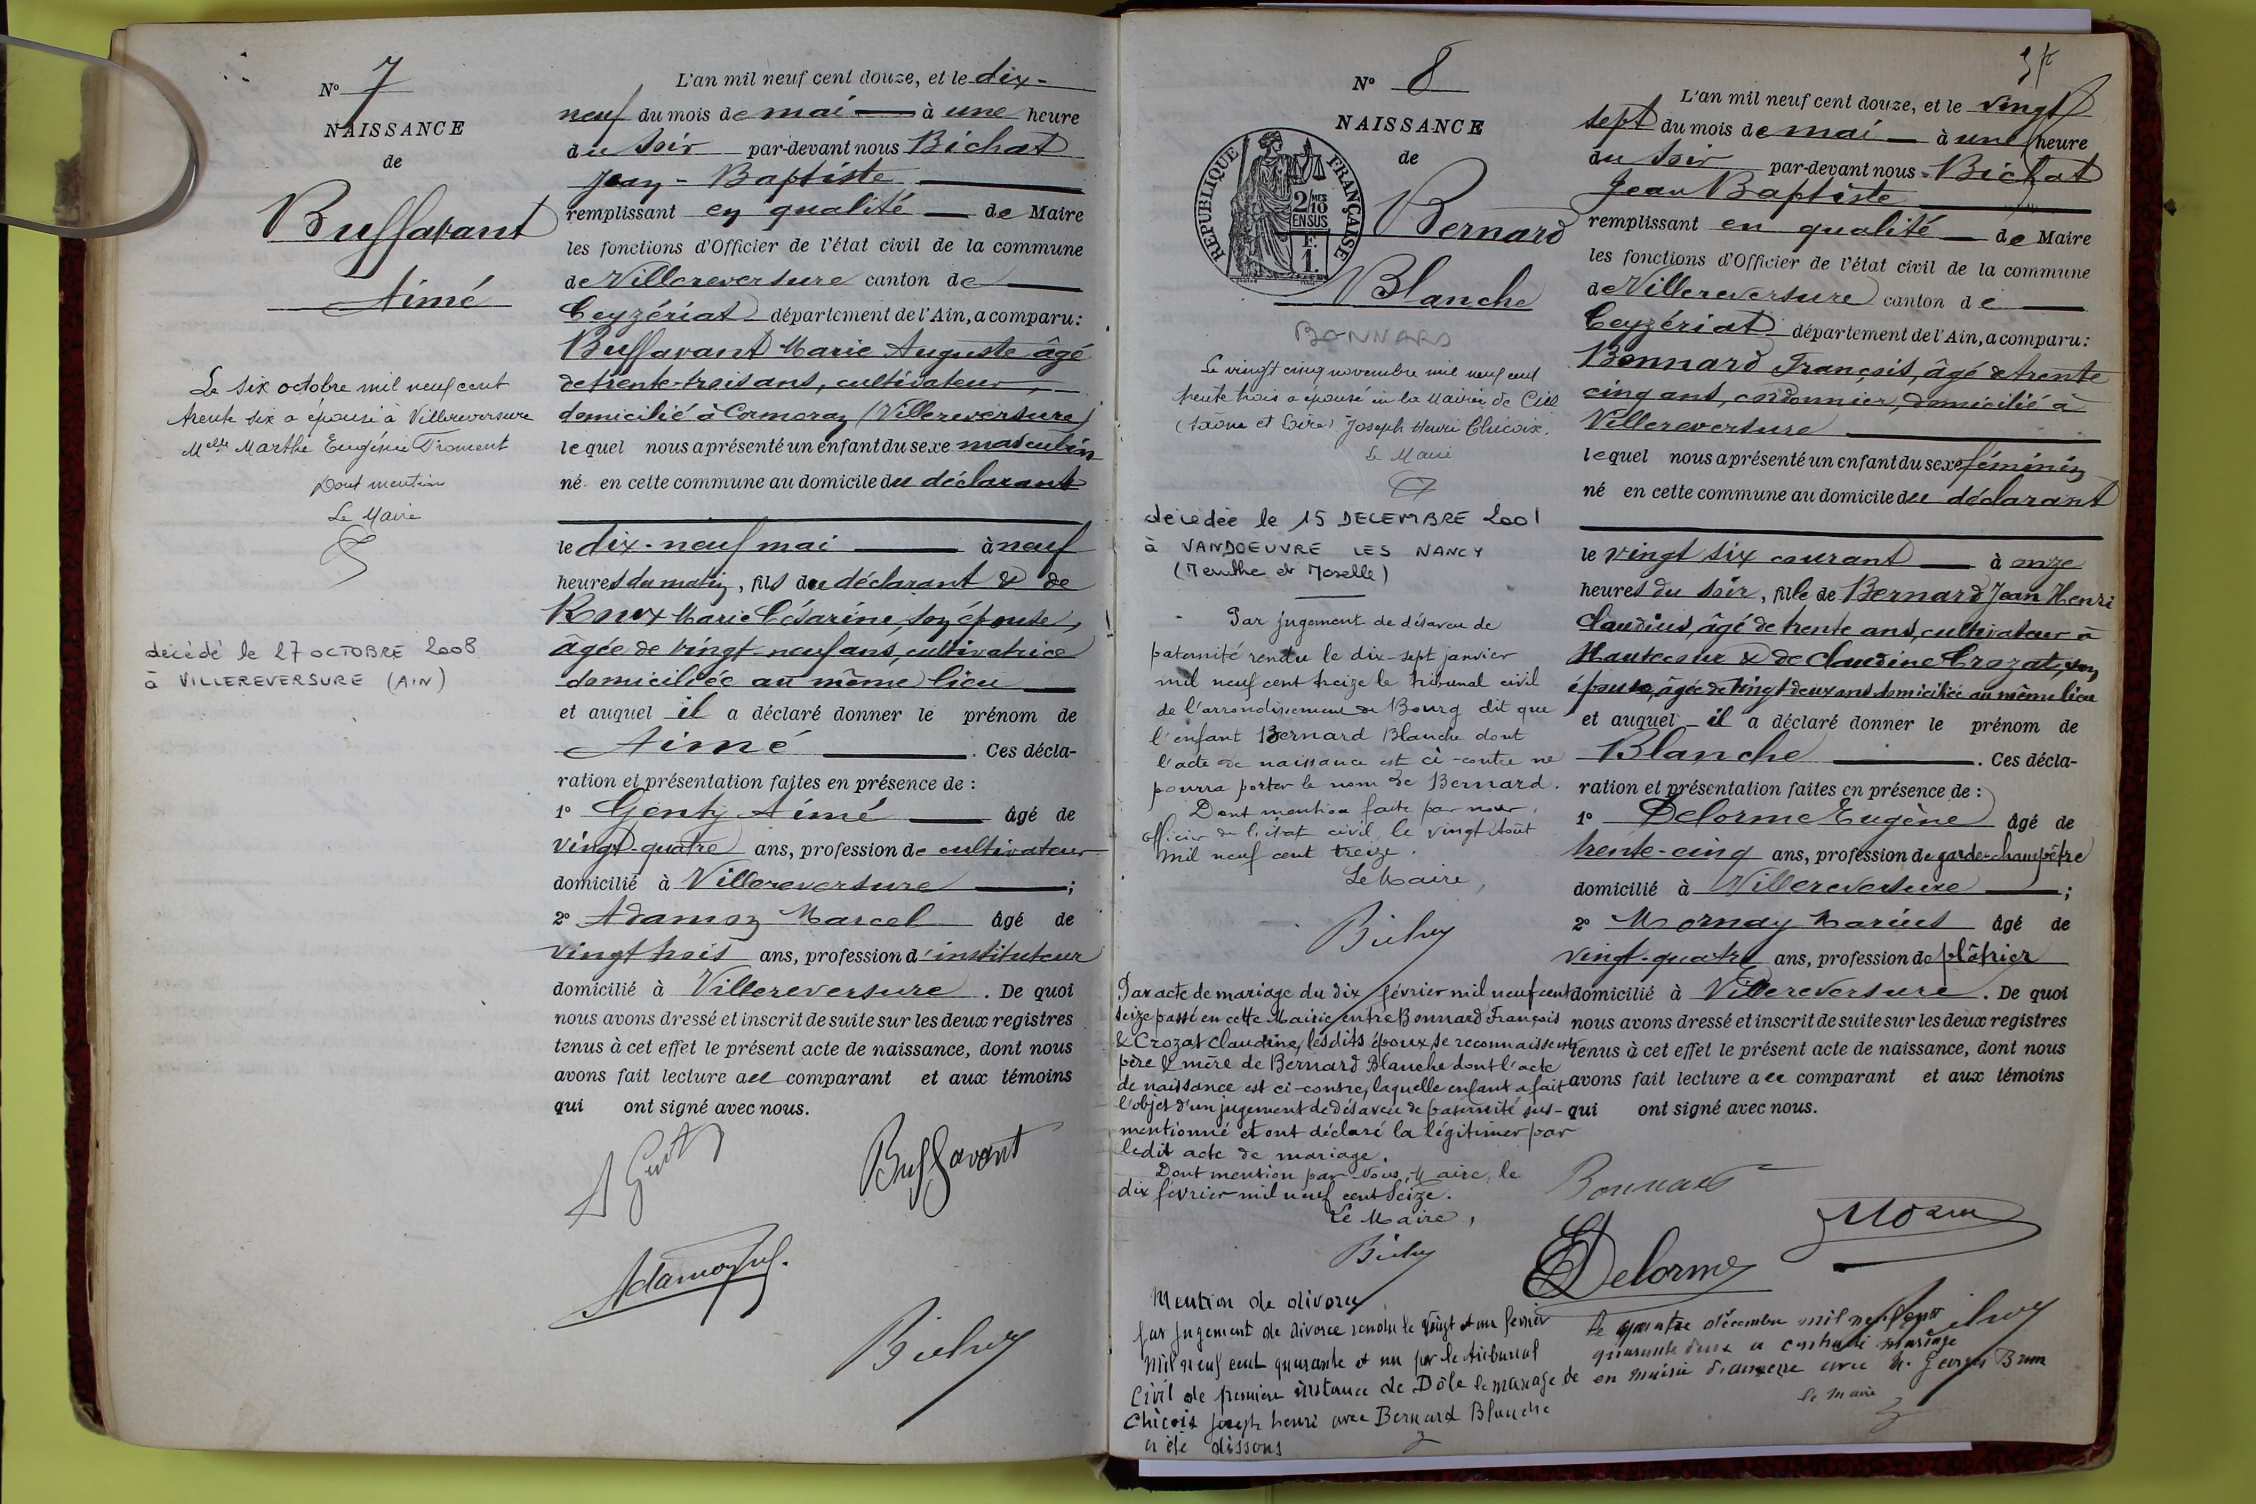 N° 7
NAISSANCE
de
Buffavant
Aimé
Le six octobre mil neuf cent
trente six a épousé à Villereversure
Melle Marthe Eugénie Froment
Dont mention
Le Maire
décédé le 27 OCTOBRE 2008
à VILLEREVERSURE (AIN)
L'an mil neuf cent douze, et le dix-
neuf du mois de mai à une heure
du soir par-devant nous Bichat
Jean-Baptiste
remplissant en qualité de Maire
les fonctions d'Officier de l'état civil de la commune
de Villereversure canton de
Ceyzériat département de l'Ain, a comparu:
Buffavant Marie Auguste âgé
de trente-trois ans, cultivateur,
domicilié à Cormoraz (Villereversure)
lequel nous a présenté un enfant du sexe masculin
né en cette commune au domicile du déclarant
le dix-neuf mai à neuf
heures du matin, fils du déclarant & de
Roux Marie Césarine, son épouse,
âgée de vingt-neuf ans, cultivatrice
domiciliée au même lieu
et auquel il a déclaré donner le prénom de
Aimé. Ces décla-
ration et présentation faites en présence de :
1° Genty Aimé âgé de
vingt-quatre ans, profession de cultivateur
domicilié à Villereversure ;
2° Adamoz Marcel âgé de
vingt trois ans, profession d'instituteur
domicilié à Villereversure. De quoi
nous avons dressé et inscrit de suite sur les deux registres
tenus à cet effet le présent acte de naissance, dont nous
avons fait lecture au comparant et aux témoins
qui ont signé avec nous.
Buffavant
Bichat
3
N° 8
NAISSANCE
de
REPUBLIQUE FRANÇAISE
2/10 MES
EN SUS
F.
1.
Bernard
Blanche
BONNARD
Le vingt cinq novembre mil neuf cent
trente trois a épousé en la Mairie de Ciel
(Saône et Loire) Joseph Henri Chicoix.
Le Maire
décédée le 15 DECEMBRE 2001
à VANDOEUVRE LES NANCY
(Meurthe et Moselle)
Par jugement de désaveu de
paternité rendu le dix-sept janvier
mil neuf cent treize le tribunal civil
de l'arrondissement de Bourg dit que
l'enfant Bernard Blanche dont
l'acte de naissance est ci-contre ne
pourra porter le nom de Bernard.
Dont mention faite par nous,
officier de l'état civil, le vingt Août
mil neuf cent treize.
Le Maire,
Bichat
Par acte de mariage du dix février mil neuf cent
seize passé en cette Mairie entre Bonnard François
& Crozat Claudine, lesdits époux se reconnaissent
père & mère de Bernard Blanche dont l'acte
de naissance est ci-contre, laquelle enfant a fait
l'objet d'un jugement de désaveu de paternité sus-
mentionné et ont déclaré la légitimer par
ledit acte de mariage.
Dont mention par Nous, Maire, le
dix février mil neuf cent seize.
Le Maire,
Bichat
Mention de divorce
Par jugement de divorce rendu le vingt et un février
mil neuf cent quarante et un par le tribunal
civil de première instance de Dôle le mariage de
Chicoix Joseph henri avec Bernard Blanche
a été dissous
L'an mil neuf cent douze, et le vingt
sept du mois de mai à une heure
du soir par-devant nous Bichat
Jean Baptiste
remplissant en qualité de Maire
les fonctions d'Officier de l'état civil de la commune
de Villereversure canton de
Ceyzériat département de l'Ain, a comparu:
Bonnard François, âgé de trente
cinq ans, cordonnier, domicilié à
Villereversure
lequel nous a présenté un enfant du sexe féminin
né en cette commune au domicile du déclarant
le vingt six courant à onze
heures du soir, fille de Bernard Jean Henri
Claudius, âgé de trente ans, cultivateur à
Hautecour & de Claudine Crozat, son
épouse, âgée de vingt deux ans domiciliée au même lieu
et auquel il a déclaré donner le prénom de
Blanche. Ces décla-
ration et présentation faites en présence de :
1° Delorme Eugène âgé de
trente-cinq ans, profession de garde-champêtre
domicilié à Villereversure ;
2° Mornay Marius âgé de
vingt-quatre ans, profession de plâtrier
domicilié à Villereversure. De quoi
nous avons dressé et inscrit de suite sur les deux registres
tenus à cet effet le présent acte de naissance, dont nous
avons fait lecture au comparant et aux témoins
qui ont signé avec nous.
Bonnard
EDelorme
Le quatre décembre mil neuf cent
quarante deux a contracté mariage
en mairie avec M. Georges Brun
Le Maire